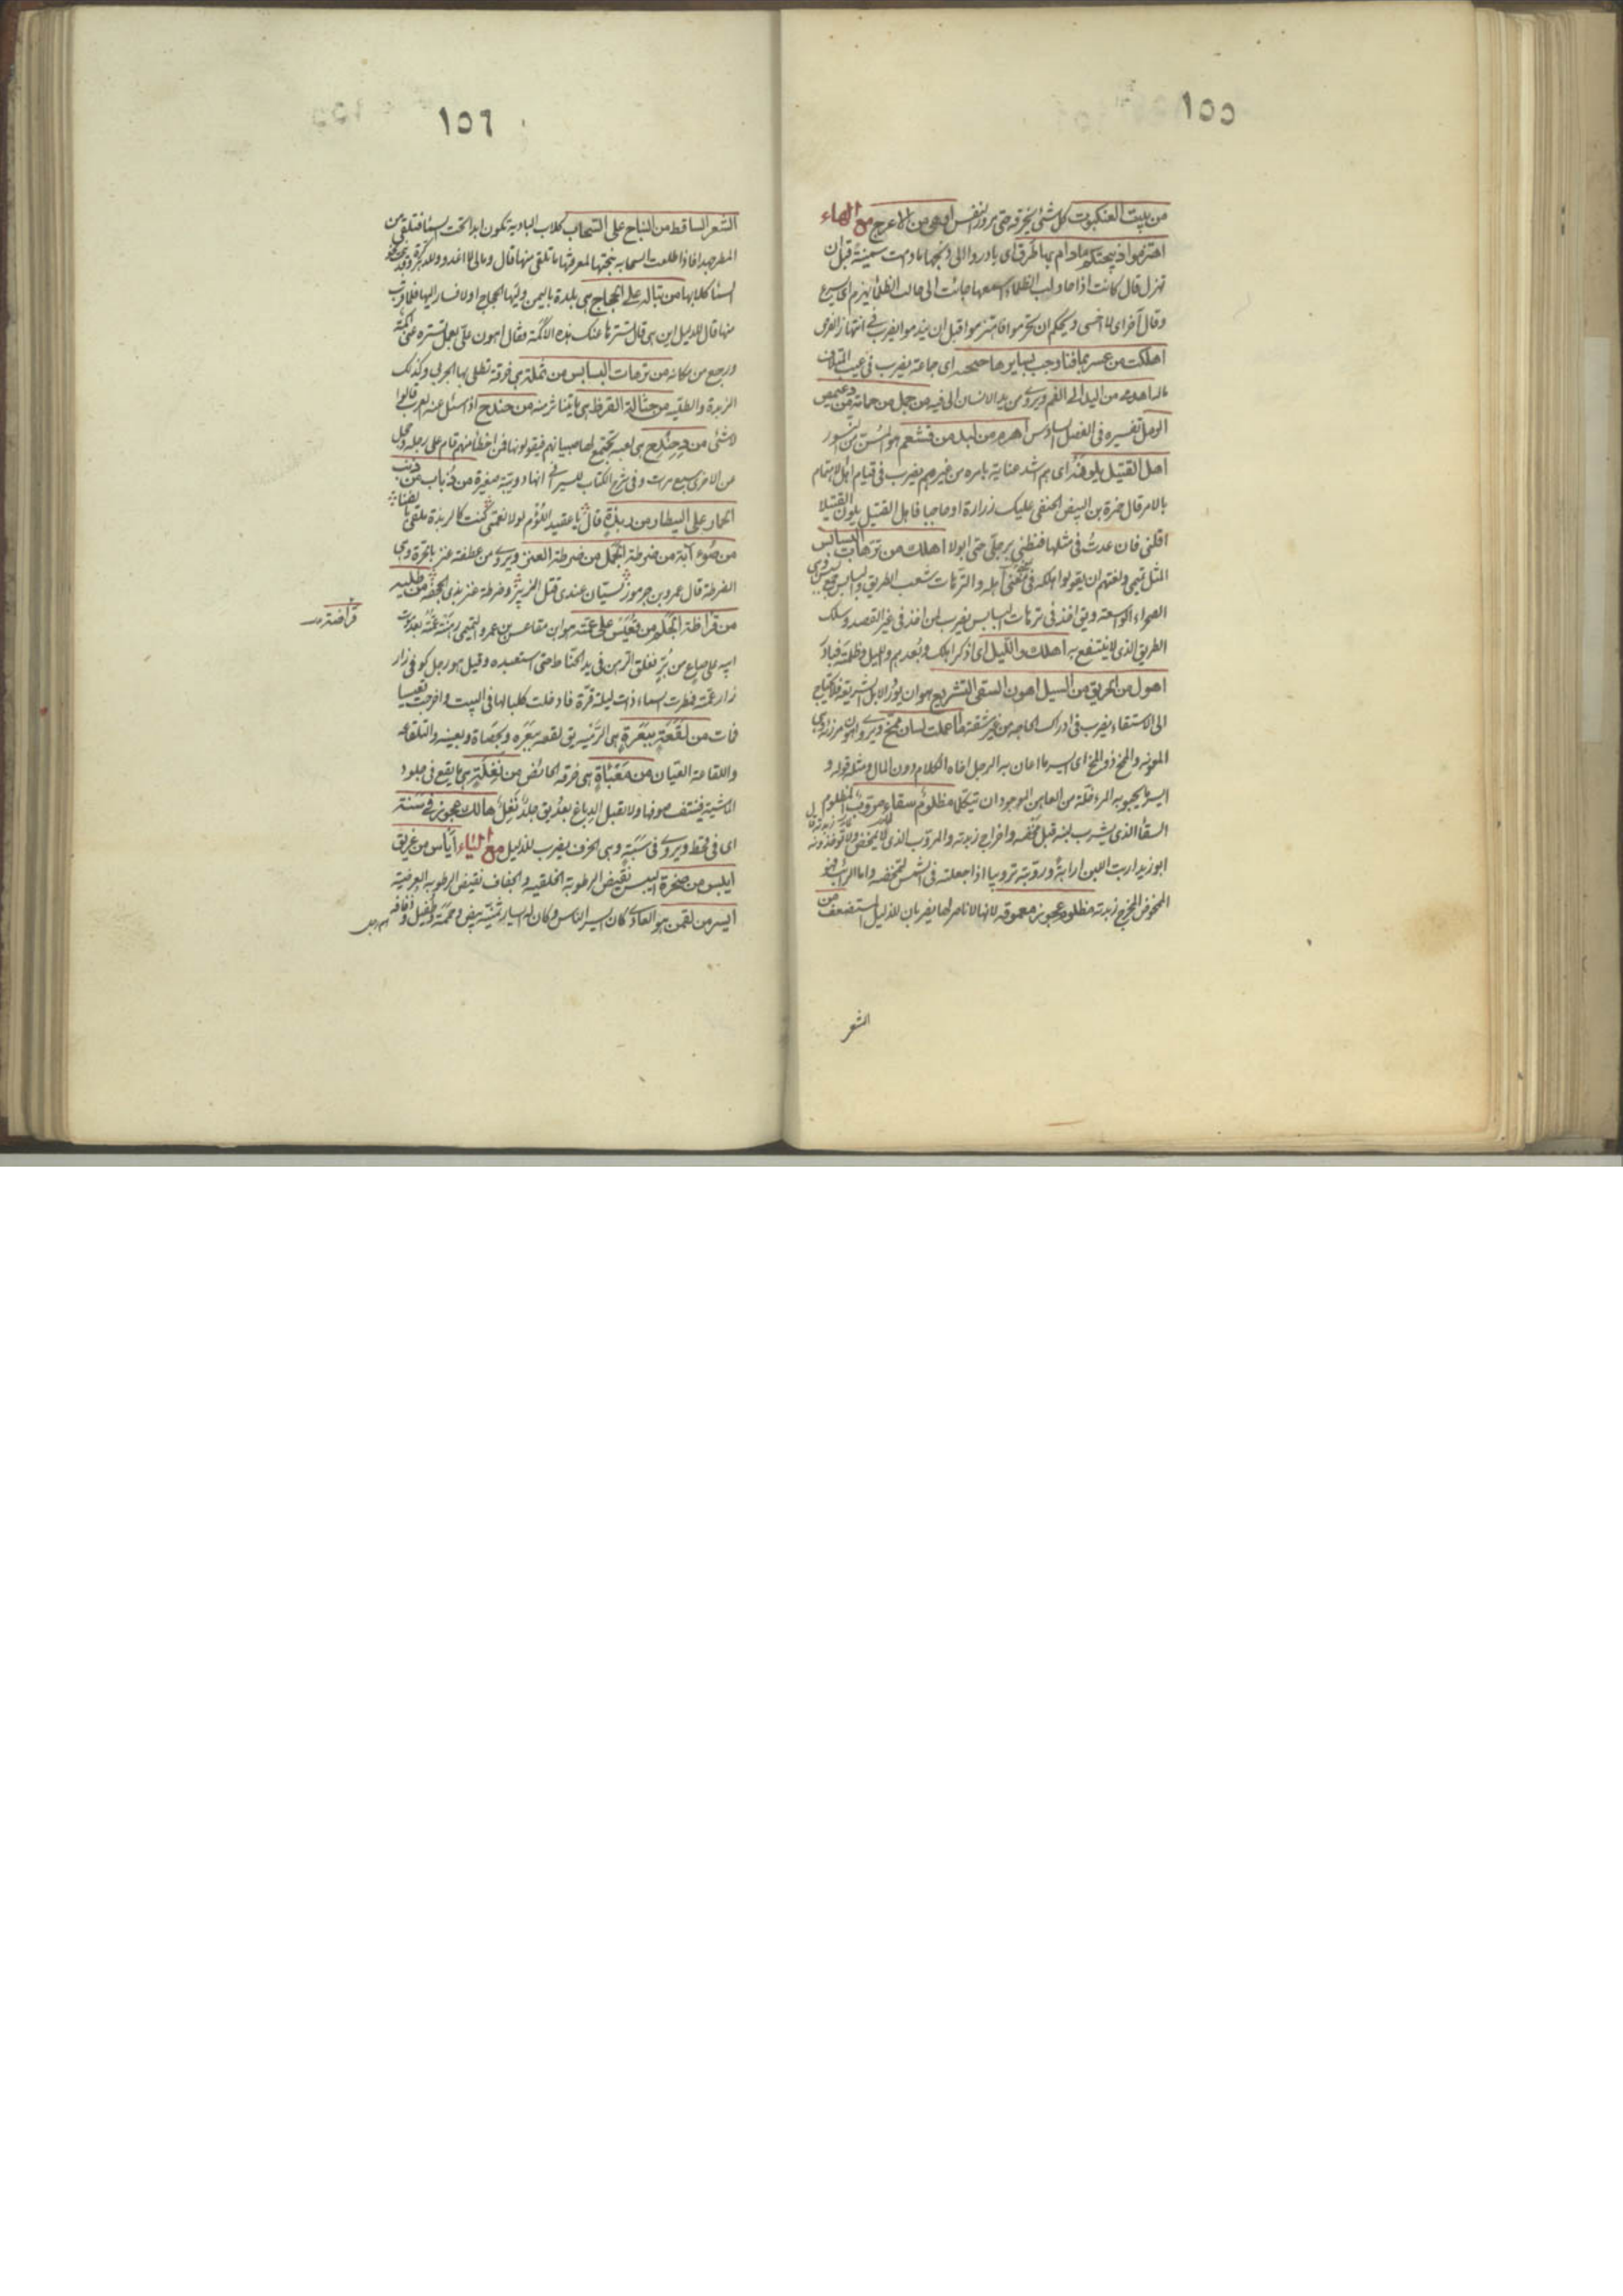 ١٥٥
من بيت العنكبوت كل شئ يخرقه حتى مرور النفس اوهى من الاعرج مع الهاء
اهتزموا ذبيحتكم مادام بها طرق اى بادروا الى ذبحها مادامت سمينة قبل ان
تهزل قال كانت اذا حاولب الظلماء
وقال آخر اى لاخشى ويحكم ان تحرموا فاهتزموا قبل ان يندموا يضرب فى انتهاز الفرص
اهلكت من عشر ثمانيا وجئت بسايرها حبحبه اى جماعة يضرب فى عيب
من اليد الى الفم ويروى من يد الانسان الى فيه من جمل من حمامة من دعيميص
الرمل تفسيره فى الفصل السادس اهرم من لبد من قشعم هو المسن من النسور
اهل القتيل يلونه اى هم اشد عناية بامره من غيرهم يضرب فى قيام اهل الاهتمام
بالامر قال ضمرة بن البيض الحنفى عليك زرارة او حاجبا فاهل القتيل يلون القتيلا
اقلنى فان عدت فى مثلها فنطنى برجلى حتى ابولا اهلك من ترهات البسابس
المثل تميمى ولغتهم ان يقولوا هلكه فى معنى اهله والترهات شعب الطريق والبسابس جمع بسبس وهى
الصحراء الواسعة ويق اخذ فى ترهات البسابس يضرب لمن اخذ فى غير القصد وسلك
الطريق الذى لا ينتفع به اهلك والليل اى اذكر اهلك وبعدهم والليل وظلمته فبادر
اهول من الحريق من السيل اهون السقى التشريع هو ان يورد الابل الشريعة فلا تحتاج
الى الاستقاء يضرب فى ادراك الحاجه من غير مشقة ما اعملت لسان ممخ ويروى اهون مرزئة وهى
المونة والممخ ذو المخ اى ايسر ما اعان به الرجل اخاه الكلام دون المال مثله قوله و
ايسر ما يحبو به المرء خلة من العاهن الموجود ان تيكلما مظلوم سقاء مروب المظلوم
السقاء الذى يشرب لبنه قبل مخضه واخراج زبدته والمروب الذى لا يمخض ولا توخذ زبدته قال
ابو زيد اربت اللبن ارابة وروبته ترويبا اذا جعلته فى الشمس لتمخضه واما الرائب فهو
الممخوض المخرج زبدته مظلوم عجوز معموقه لانها لا ناصر لها يضربان للذليل المستضعف من
الشعر
١٥٦
الشعر الساقط من النباح على السحاب كلاب البادية تكون ابدا تحت السماء فتلقى من
المطر جهدا فاذا طلعت السحابه نبحتها لمعرفتها ما تلقى منها قال ومالى لا اغدو وللدهر كرة وقد نبحت نحو
السماء كلابها من تباله على الحجاج هى بلدة باليمن وليها الحجاج اولا فسار اليها فلما قرب
منها قال للدليل اين هى قال تسترها عنك هذه الاكمة فقال اهون على بعمل تستره عنى اكمة
ورجع من مكانه من ترهات البسابس من ثملة هى خرقة تطلى بها الجربى وكذلك
الربذة والطليه من حثالة القرظ هى ما يتناثر منه من حندج اذا سئل عنه العرب قالوا
لا شئ من دحندح هى لعبة يجتمع لها صبيانهم فيقولونها فمن اخطأ منهم قام على رجله وحجل
من الاخرى سبع مرات وفى شرح الكتاب للسيرافى انها دويبة صغيرة من ذباب من ذنب
الحمار على البيطار من ربذة قال يا عقيد اللؤم لولا نعمتى كنت كالربذة ملقى بالفناء
من ضوء آنة من ضرطة الجمل من ضرطة العنز ويروى من عطفة عنز بالحرة وهى
الضرطة قال عمرو بن جرموز لسيان عندى قتل الزبير وضرطة عنز بذى الجحفه من طلية
من قراظة الجلم من قعيس على عمته هو ابن مقاعس بن عمرو التميمى رهنته عمته بعد موت
ابيه على صاع من بر فغلق الرهن فى يد الحناط حتى استعبده وقيل هو رجل كوفى زار
زار عمته فمطرت السماء ذات ليلة قرة فادخلت كلبا لها فى البيت واخرجت قعيسا
فمات من لقعة ببعرة هى الرمية يق لقعه ببعره وبحصاة وبعينه والتلقاعه
واللقاعة العيان من معبأة هى خرقه الحائض من نغلة هى ما يقع فى جلود
الماشية فينتف صوفها ولا تقبل الدباغ بعد يق جلد نغل هالك عجوز فى سنة
اى فى قحط ويروى فى سبتة وهى الخرف يضرب للذليل مع الياء ايأس من غريق
ايبس من صخرة اليبس نقيض الرطوبه الخلقيه والجفاف نقيض الرطوبه العرضية
ايسر من لقمن هو العادى كان ايسر الناس وكان له ايسار ثمنية بيض وحممة وطفيل وذفافه
قراضة